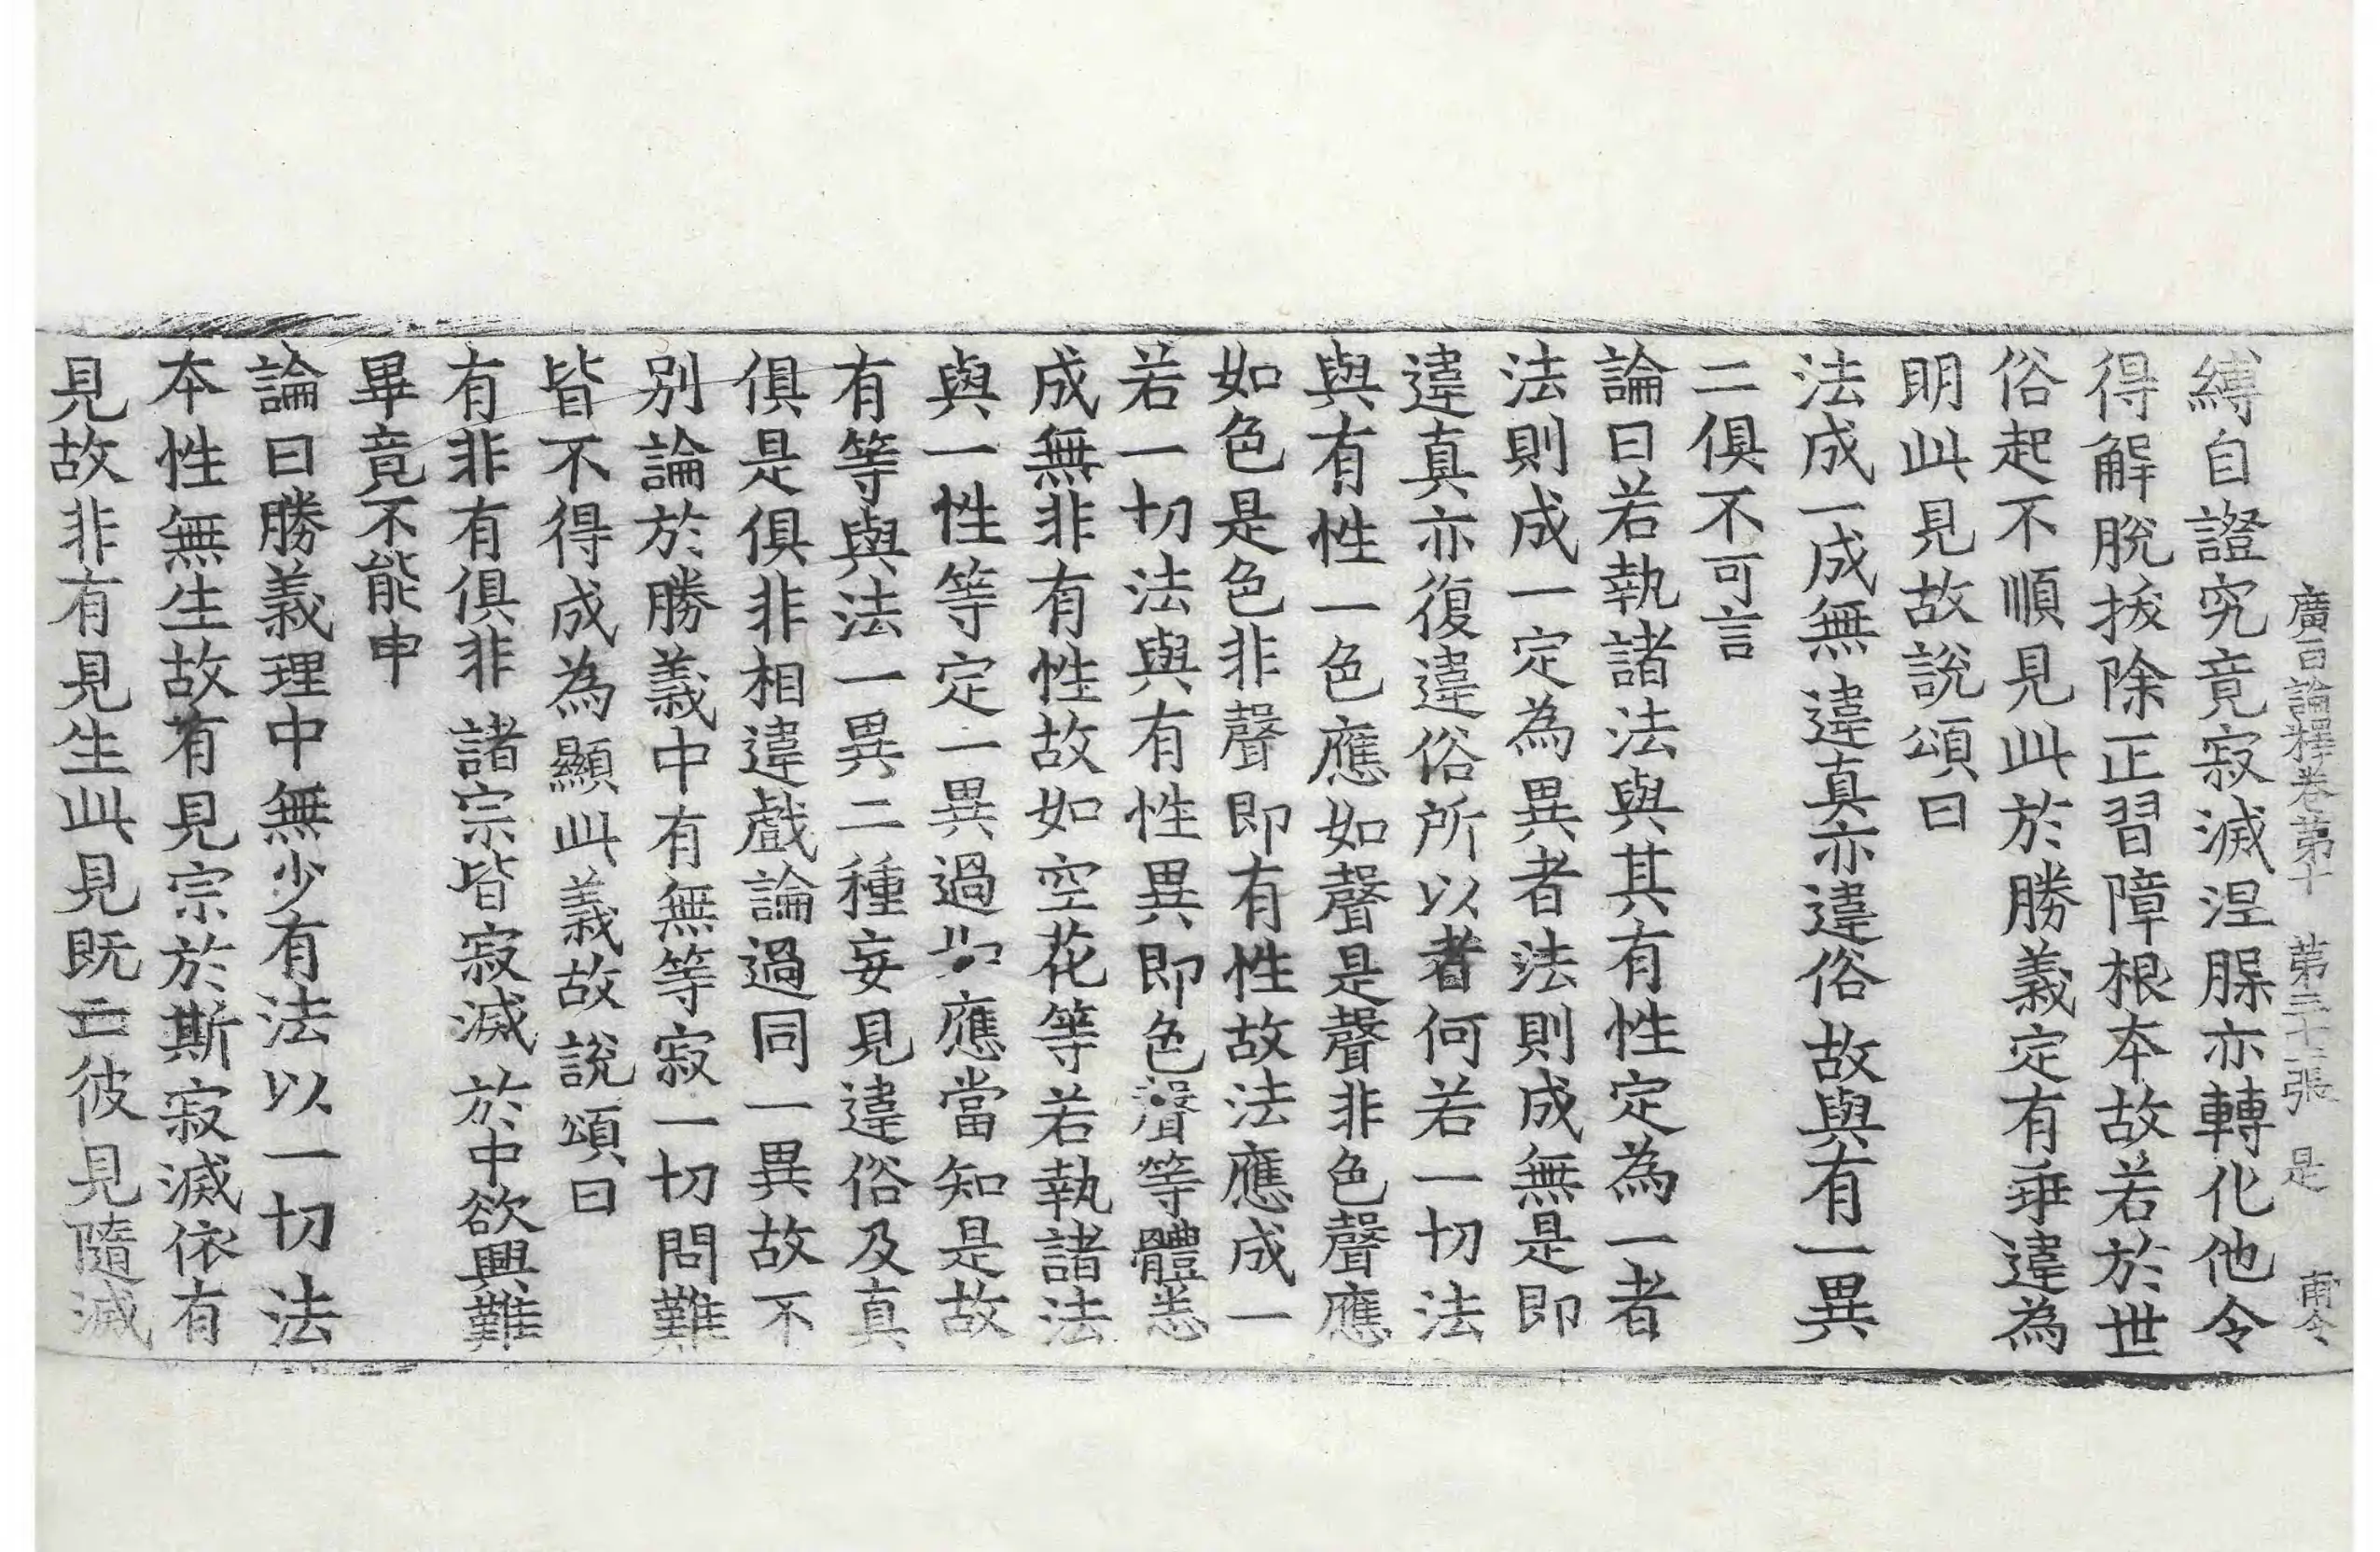 廣百論釋卷第十 第三十張 是 甫令
縛自證究竟寂滅涅脲亦轉化他令
得解脫拔除正習障根本故若於世
俗起不順見此於勝義定有乖違為
明此見故說頌曰
法成一成無違真亦違俗故與有一異
二俱不可言
論曰若執諸法與其有性定為一者
法則成一定為異者法則成無是即
違真亦復違俗所以者何若一切法
與有性一色應如聲是聲非色聲應
如色是色非聲即有性故法應成一
若一切法與有性異即色聲等體悉
成無非有性故如空花等若執諸法
與一性等定一異過 應當知是故
有等與法一異二種妄見違俗及真
俱是俱非相違戲論過同一異故不
別論於勝義中有無等寂一切問難
皆不得成為顯此義故說頌曰
有非有俱非諸宗皆寂滅於中欲興難
畢竟不能申
論曰勝義理中無少有法以一切法
本性無生故有見宗於斯寂滅依有
見故非有見生此見既亡彼見隨滅